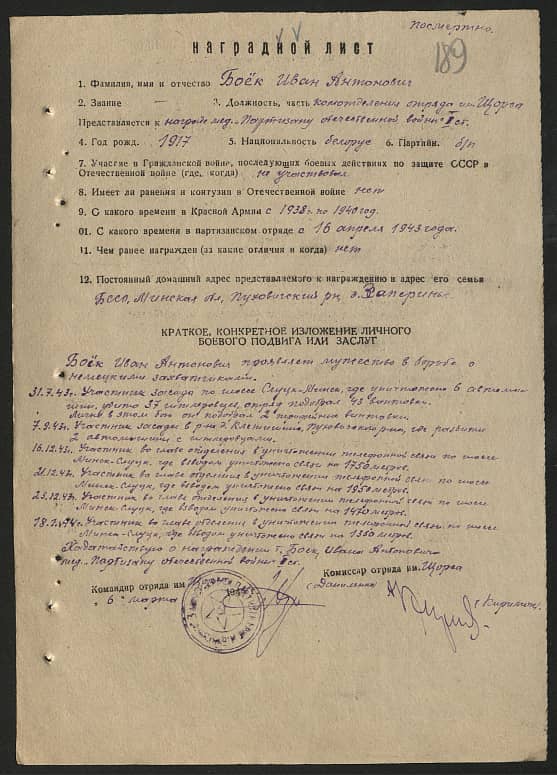 Посмертно.
189
НАГРАДНОЙ ЛИСТ
1. Фамилия, имя и отчество Боёк Иван Антонович
2. Звание — 3. Должность, часть комотделения отряда им. Щорса
Представляется к награде мед. "Партизану отечественной войны" I ст.
4. Год рожд. 1917 5. Национальность белорус 6. Партийн. б/п
7. Участие в Гражданской войне, последующих боевых действиях по защите СССР в
Отечественной войне (где, когда) не участвовал
8. Имеет ли ранения и контузии в Отечественной войне нет
9. С какого времени в Красной Армии с 1938г. по 1940 год.
01. С какого времени в партизанском отряде с 16 апреля 1943 года.
11. Чем ранее награжден (за какие отличия и когда) нет
12. Постоянный домашний адрес представляемого к награждению и адрес его семьи
БССР, Минская обл, Пуховичский рн, д.
КРАТКОЕ, КОНКРЕТНОЕ ИЗЛОЖЕНИЕ ЛИЧНОГО
БОЕВОГО ПОДВИГА ИЛИ ЗАСЛУГ
Боёк Иван Антонович проявляет мужество в борьбе с
немецкими захватчиками.
31.7.43г. Участник засады по шоссе Слуцк-Минск, где уничтожено 6 автома-
шин, убито 37 гитлеровцев, отряд подобрал 43 винтовки.
Лично в этом бою он подобрал 2 трофейные винтовки.
7.9.43г. Участник засады в р-не д. Пуховичский р-на, где разбили
2 автомашины с гитлеровцами.
16.12.43г. Участник во главе отделения в уничтожении телефонной связи по шоссе
Минск-Слуцк, где взводом уничтожено связи на 1750 метров.
21.12.43г. Участник во главе отделения в уничтожении телефонной связи по шоссе
Минск-Слуцк, где взводом уничтожено связи на 1950 метров.
23.12.43г. Участник во главе отделения в уничтожении телефонной связи по шоссе
Минск-Слуцк, где взводом уничтожено связи на 1470 метров.
18.2.44г. Участник во главе отделения в уничтожении телефонной связи по шоссе
Минск-Слуцк, где взводом уничтожено связи на 1350 метров.
Ходатайствую о награждении т. Боёк, Ивана Антоновича
мед. "Партизану отечественной войны" I ст.
Командир отряда им. Комиссар отряда им. Щорса
6 марта 194